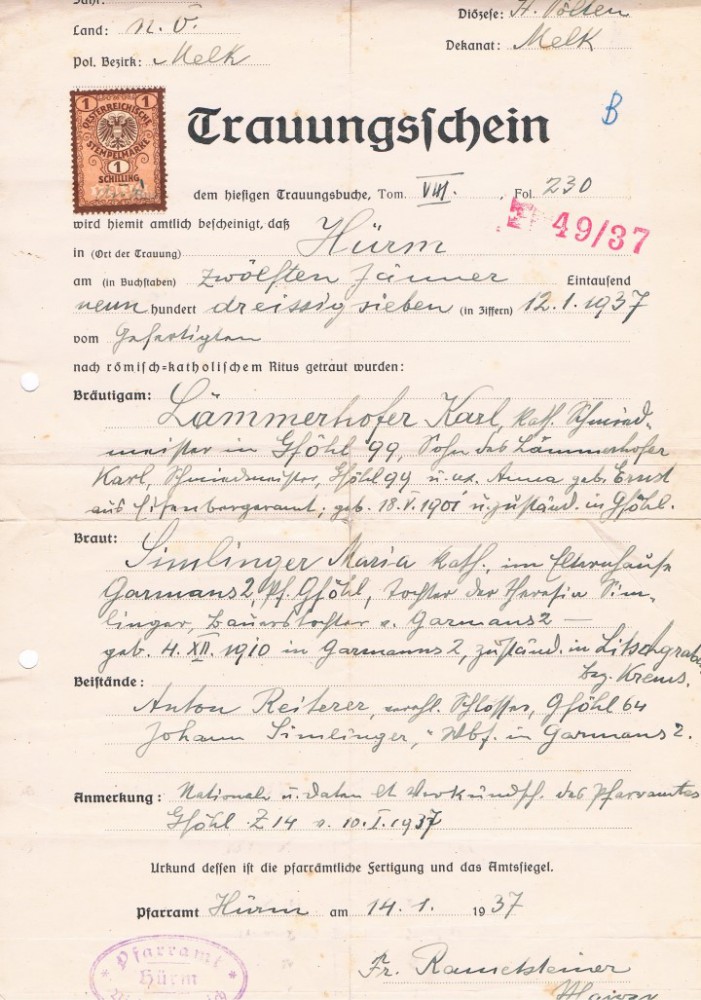 Jahr:
Land: N. Ö.
Diözese: St. Pölten
Pol. Bezirk: Melk
Dekanat: Melk
1 1
OESTERREICHISCHE
STEMPELMARKE
1
SCHILLING
Trauungsschein
B
dem hiesigen Trauungsbuche, Tom. VIII. , Fol. 230
49/37
wird hiemit amtlich bescheinigt, daß
in (Ort der Trauung) Hürm
am (in Buchstaben) zwölften Jänner Eintausend
neun hundert dreissig sieben (in Ziffern) 12.1.1937
vom Gefertigten
nach römisch-katholischem Ritus getraut wurden:
Bräutigam: Lämmerhofer Karl, kath. Schmied-
meister in Gföhl 99, Sohn des Lämmerhofer
Karl, Schmiedmeister, Gföhl 99 u. ux. Anna geb. Ernst
aus Eisenbergeramt, geb. 18.V.1901 u. zuständ. in Gföhl.
Braut: Simlinger Maria kath., im Elternhause
Garmans 2, Pf. Gföhl, Tochter der Theresia Sim-
linger, Bauerstochter v. Garmans 2 —
geb. 4. XII. 1910 in Garmanns 2, zuständ. in Litschgraben
Bez. Krems.
Beistände:
Anton Reiterer, verehl. Schlosser, Gföhl 64
Johann Simlinger, " Wbs. in Garmans 2.
Anmerkung: Nationale u. Daten lt Verkündsch. des Pfarramtes
Gföhl Z 14 v. 10.I.1937
Urkund dessen ist die pfarrämtliche Fertigung und das Amtssiegel.
Pfarramt Hürm am 14.1. 1937
Pfarramt
Hürm
Fr. Ramelsteiner